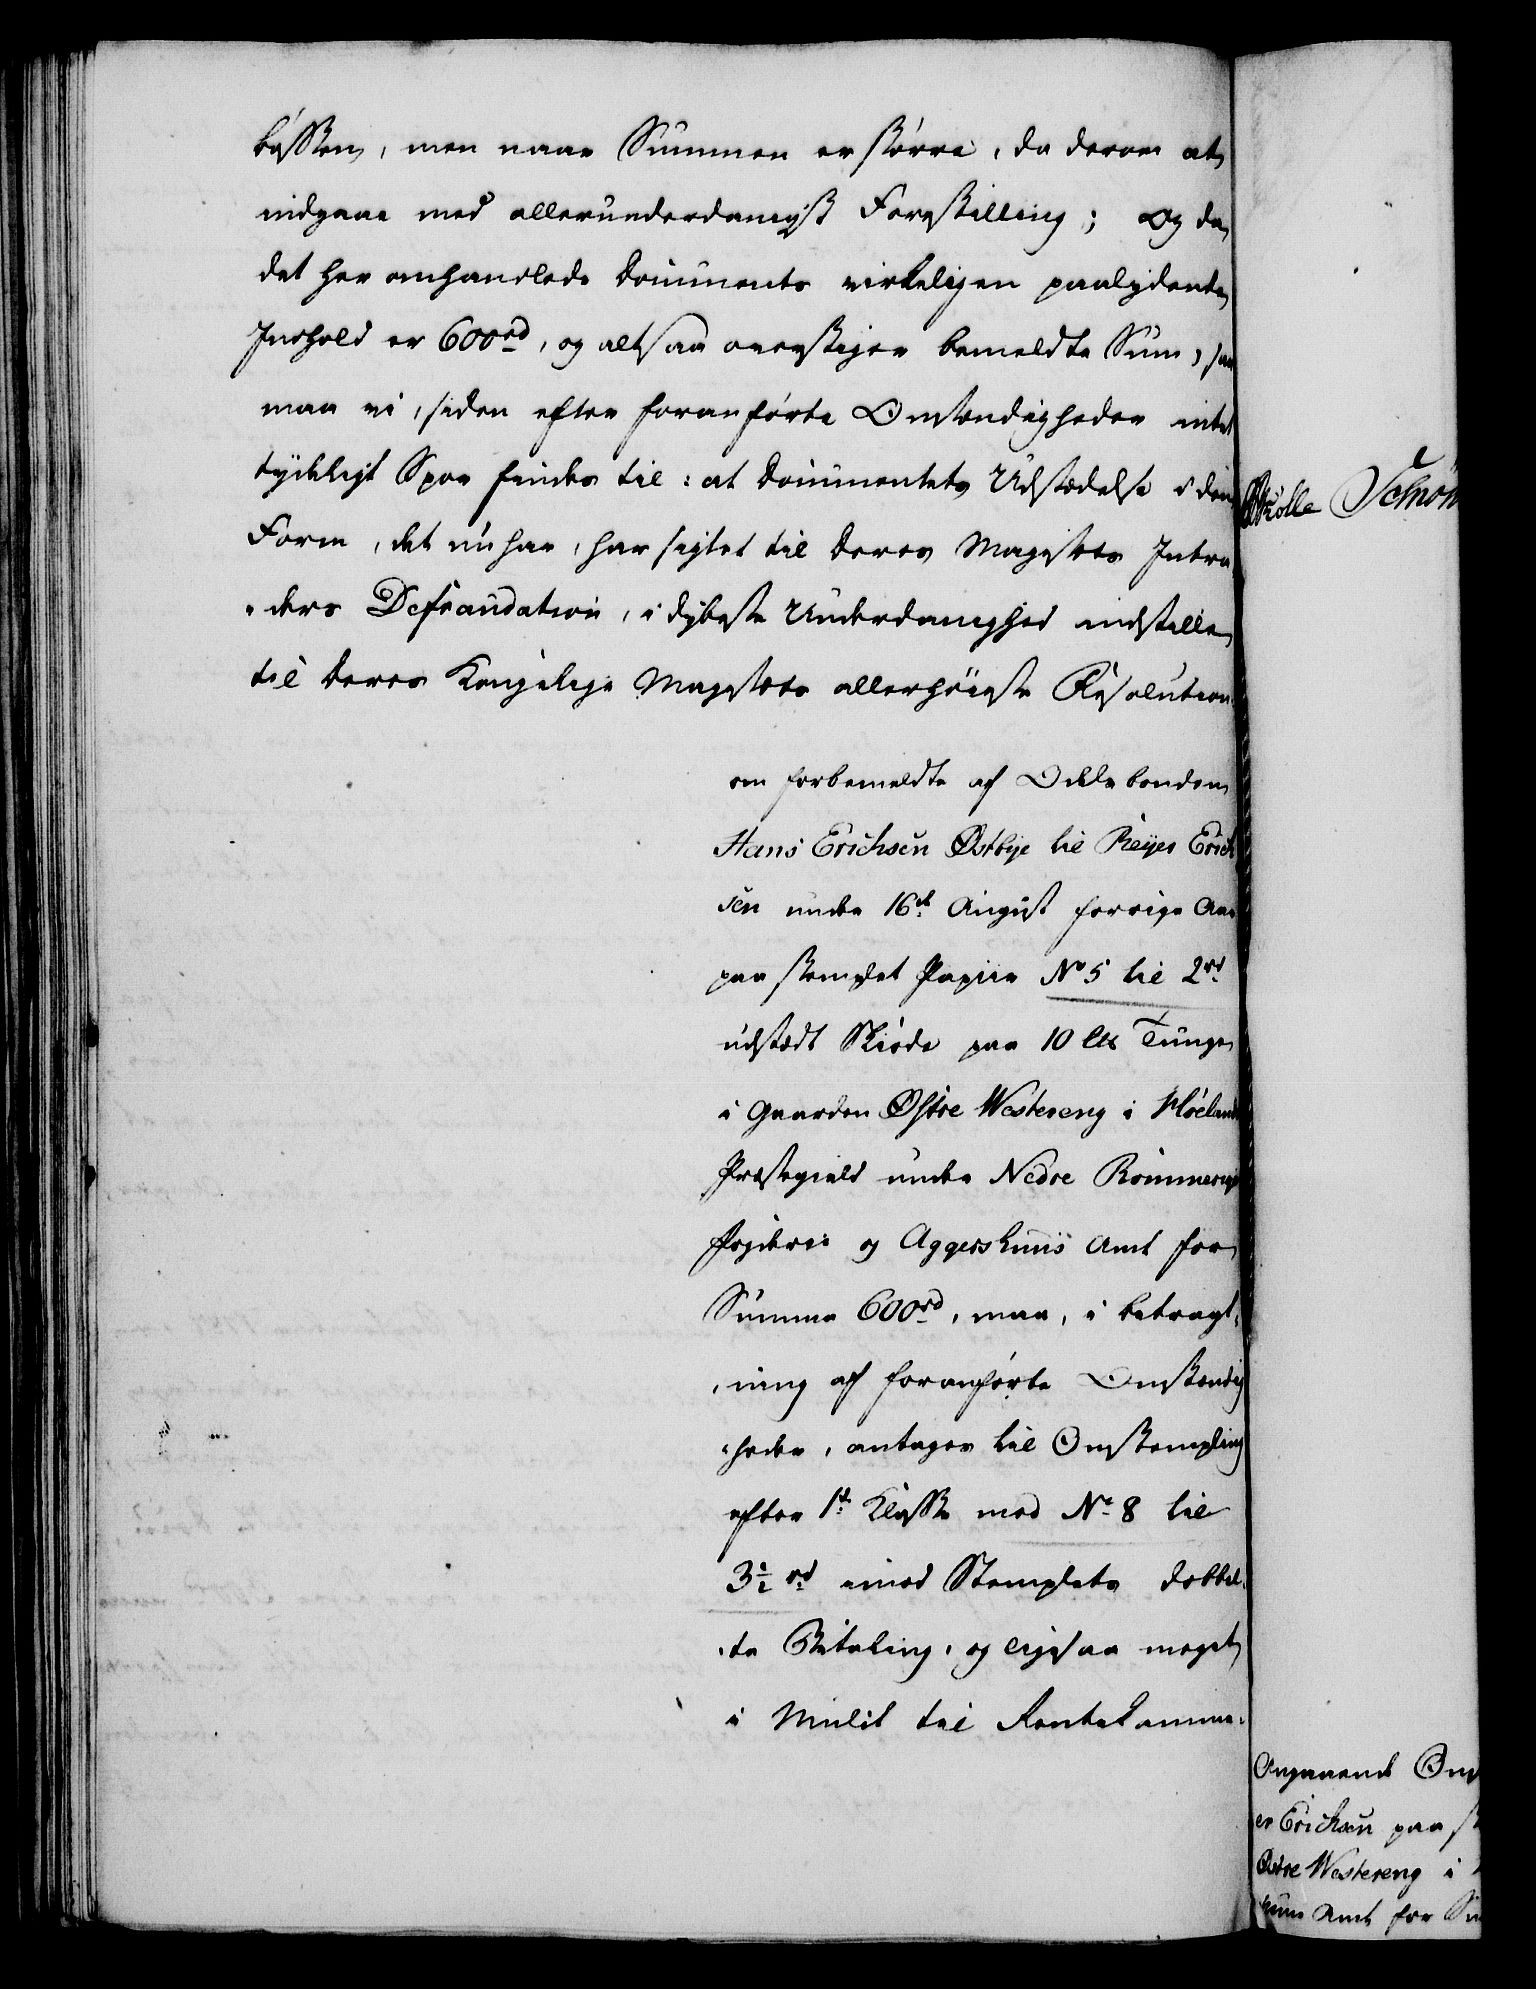 men naar Summen er større, da derom at
indgaae med allerunderdanigst Forestilling; Og da
det her omhandlede Documents virkeligen paalydende
Indhold er 600 rd, og altsaa overstiger bemeldte Sum, saa
maa vi, siden efter foranførte Omstændigheder intet
tydeligt Spor findes til: at Documentets Udstædelse i den
Form, det nu har, har sigtet til Deres Majestæts Intra-
-ders Defraudation, i dybeste Underdanighed indstille
til Deres Kongelige Majestæts allerhøieste Resolution
om forbemeldte af Odelsbonden
Hans Erichsen Østbye til Reijer Erich
sen under 16de August forrige Aar
paa stemplet Papiir No 5 til 2 rd
udstædt Skiøde paa 10 Lb Tunge
i Gaarden Østre Westereng i Høelands
Præstegield under Nedre Rommerigs
Fogderie og Aggershuus Amt for
Summa 600 rd, maa, i betragt-
-ning af foranførte Omstændig
-heder, antages til Omstempling
efter 1te Classe med No 8 til
3½ rd imod Stemplets dobbel-
-te Betaling, og ligesaa meget
i Mulct til Rentekamme-
Schøn
Angaaende Om
er Erichsen paa
Østre Westereng i
huus Amt for